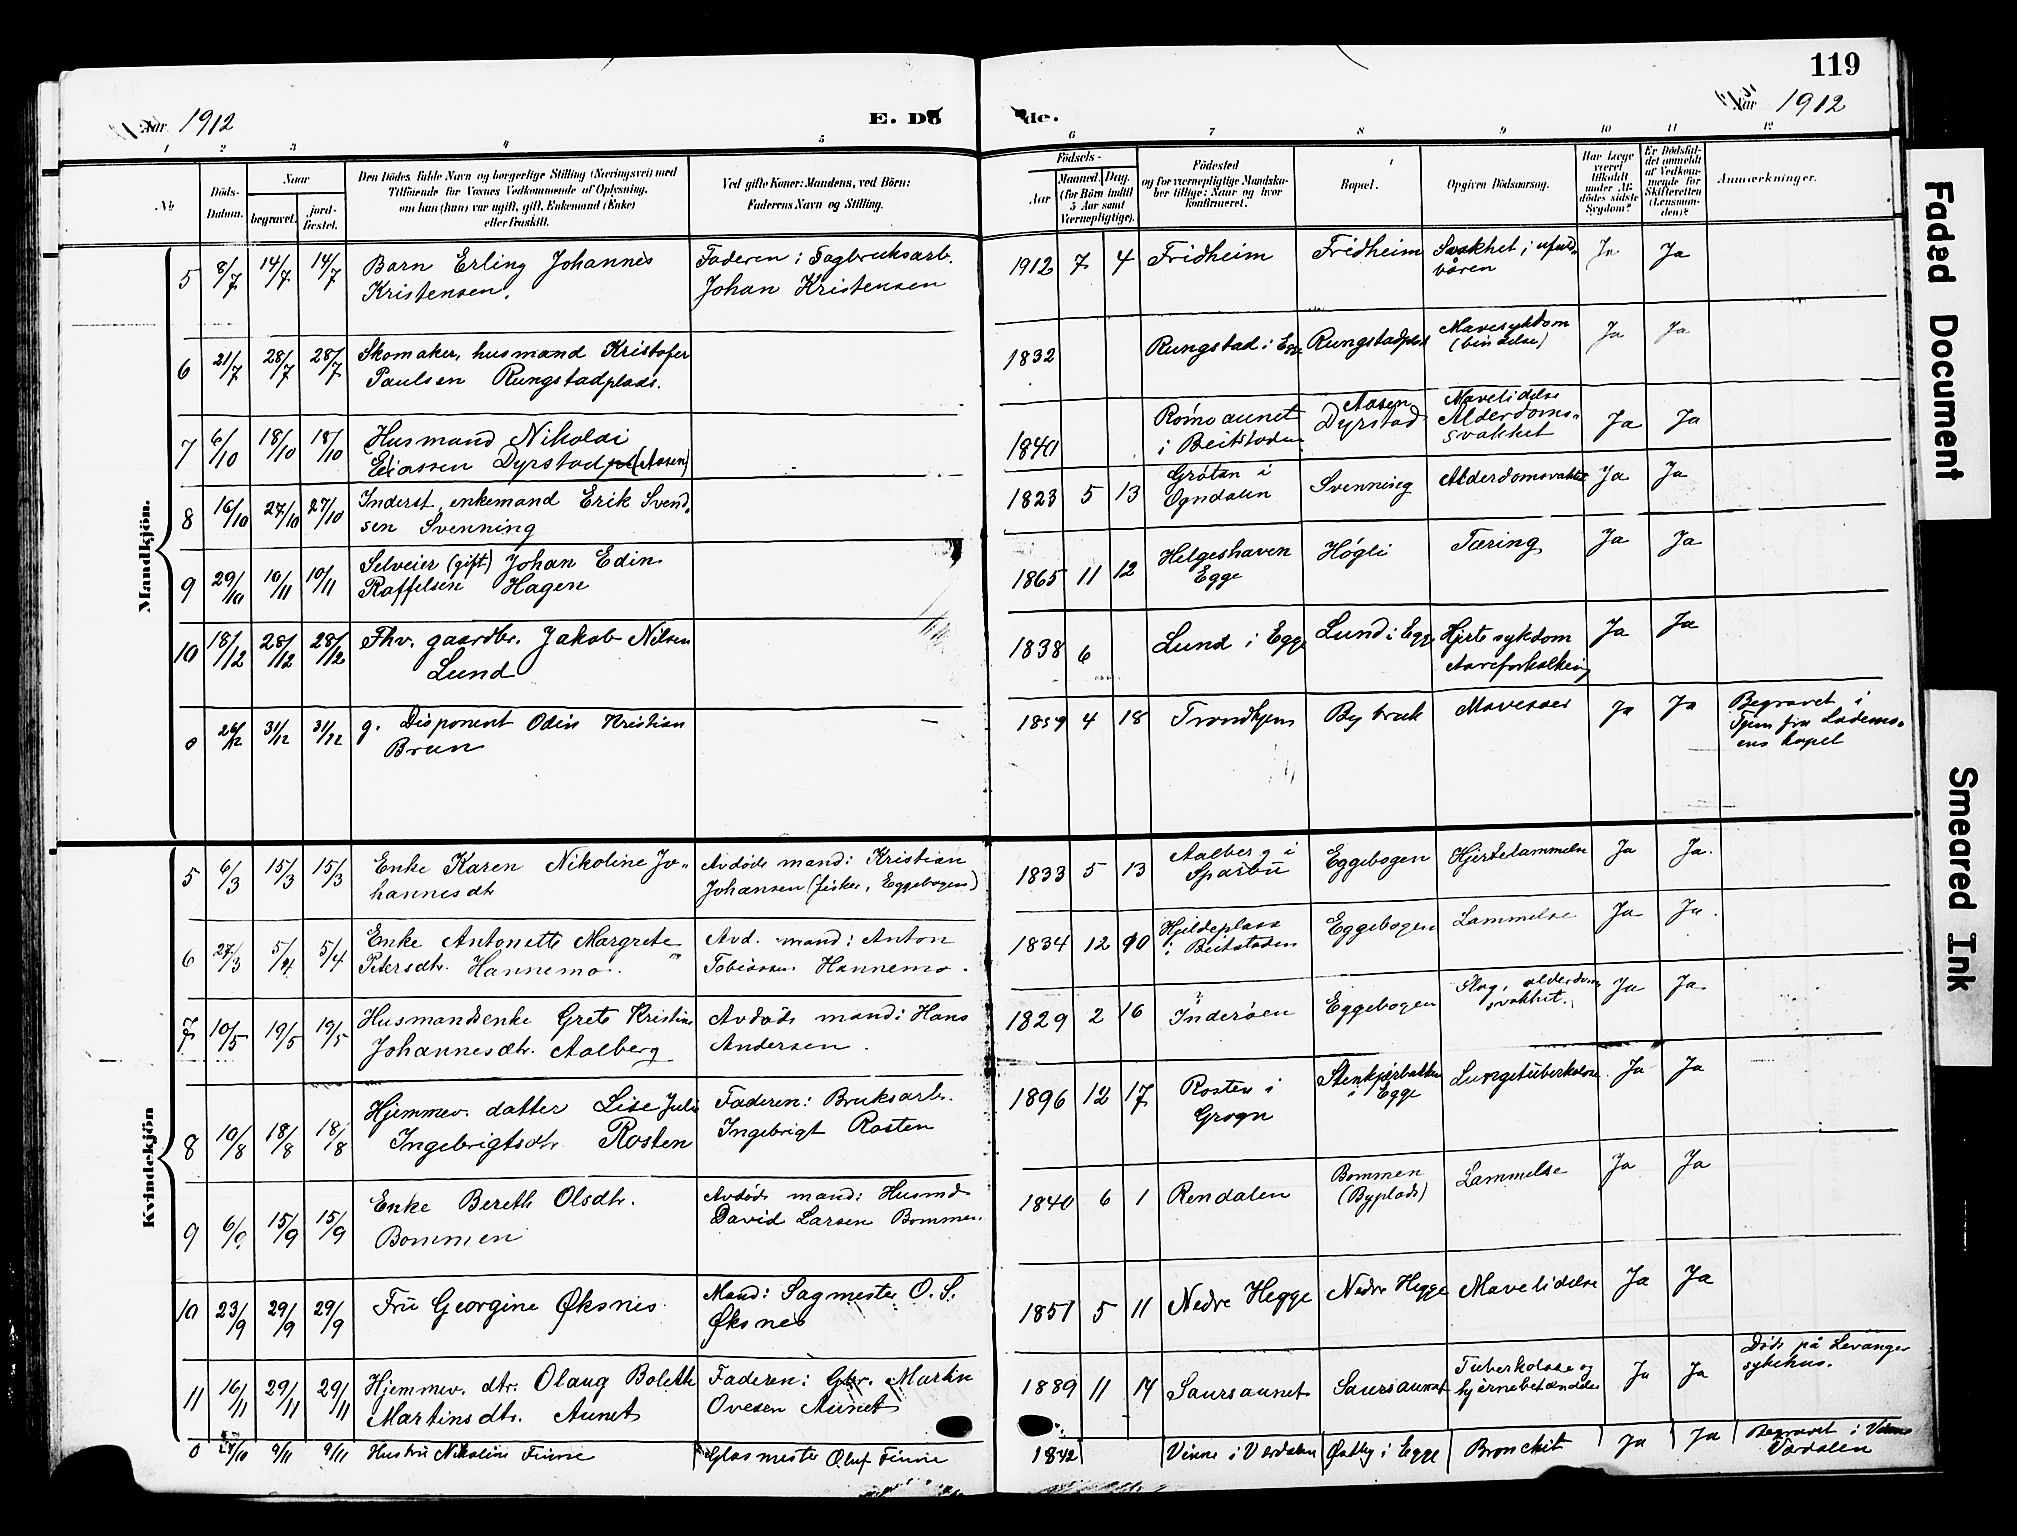 119
Aar 1912
E. Döde.
Aar 1912
1 2 3 4 5 6 7 8 9 10 11 12
№
Döds-Datum.
Naar
begravet.
jord-fæstet.
Den Dödes fulde Navn og borgerlige Stilling (Næringsvei) med
Tilföiende for Voxnes Vedkommende af Oplysning,
om han (hun) var ugift, gift, Enkemand (Enke)
eller fraskilt.
Ved gifte Koner: Mandens, ved Börn:
Faderens Navn og Stilling.
Födsels-
Aar
Maaned. Dag.
(for Börn indtil
5 Aar samt
Værnepligtige).
Födested
og for værnepligtige Mandska-
ber tillige: Naar og hvor
konfirmeret.
Bopæl.
Opgiven Dödsaarsag.
Har Læge
været
tilkaldt
under Af-
dödes sidste
Sygdom?
Er Dödsfal-
det anmeldt
af Vedkom-
mende for
Skifteretten
(Lensman-
den)?
Anmærkninger.
Mandkjön.
5 8/7 14/7 14/7 Barn Erling Johannes Faderen: Sagbruksarb. 1912 7 4 Fridheim Fridheim Svakhet; ufuld- Ja Ja
Kristensen. Johan Kristensen båren
6 21/7 28/7 28/7 Skomaker, husmand Kristofer 1832 Rungstad i Egge Rungstadplads Mavesykdom Ja Ja
Paulsen Rungstadplads. (bindelse)
7 6/10 18/10 18/10 Husmand Nikolai 1840 Römoaunet Aasen Mavelidelse Ja Ja
Eliassen Dyrstad (Aasen) i Beitstaden Dyrstad Alderdoms-
svakhet
8 16/10 27/10 27/10 Inderst, enkemand Erik Svend- 1823 5 13 Grötan i Svenning Alderdomsvakhet Ja Ja
sen Svenning Ogndalen
9 29/10 10/11 10/11 Selveier (gift) Johan Edin 1865 11 12 Helgeshaven Høgli Tæring Ja Ja
Raffelsen Hagen Egge
10 18/12 28/12 28/12 Fhv. gaardbr. Jakob Nilsen 1838 6 Lund i Egge Lund i Egge Hjertesykdom Ja Ja
Lund Aareforkalkning
0 26/12 31/12 31/12 g. Disponent Odin Kristian 1859 4 18 Trondhjem By bruk Mavesaar Ja Ja Begravet i
Brun Tjem fra Lademo-
ens kapel
Kvindekjön
5 6/3 15/3 15/3 Enke Karen Nikoline Jo- Avdøde mand: Kristian 1833 5 13 Aalberg i Eggebogen Hjertelammelse Ja Ja.
hannesdt Johansen (fisker, Eggebogen) Sparbu
6 27/3 5/4 5/4 Enke Antonette Margrete Avd. mand: Anton 1834 12 10 Hjeldeplass Eggebogen Lammelse Ja Ja.
Petersdtr. Hannemo. Tobiassen Hannemo. i Beitstaden
7 10/5 19/5 19/5 Husmandsenke Grete Kristine Avdøde mand: Hans 1829 2 16 Inderøen Eggebogen Slag, alderdoms Ja Ja.
Johannesdtr. Aalberg Andersen. svakhet.
8 10/8 18/8 18/8 Hjemmev. datter Lise Julie Faderen: Bruksarb. 1896 12 17 Rosten i Stenkjerbakken Lungetuberkolose. Ja Ja
Ingebrigtsdtr. Rosten Ingebrigt Rosten Grogn i Egge
9 6/9 15/9 15/9 Enke Bereth Olsdtr. Avdøde mand: Husmd 1840 6 1 Rendalen Bommen Lammelse Ja Ja
Bommen David Larsen Bommen. (Byplads)
10 23/9 29/9 29/9 Fru Georgine Øksnes Mand: Sagmester O. S. 1851 5 11 Nedre Hegge Nedre Hegge Mavelidelse Ja Ja
Øksnes
11 16/11 29/11 29/11 Hjemmev. dtr. Olaug Boleth Faderen: Gbr. Martin 1889 11 14 Saursaunet Saursaunet Tuberkolose og Ja Ja Død på Levanger
Martinsdtr. Aunet Ovesen Aunet hjernebetændelse sykehus.
0 27/10 9/11 9/11 Hustru Nikoline Finne Glasmester Oluf Finne 1842 Vinne i Værdalen Østby i Egge Bronchit Ja Ja Begravet i Vinne
Værdalen
Faded Document
Smeared Ink